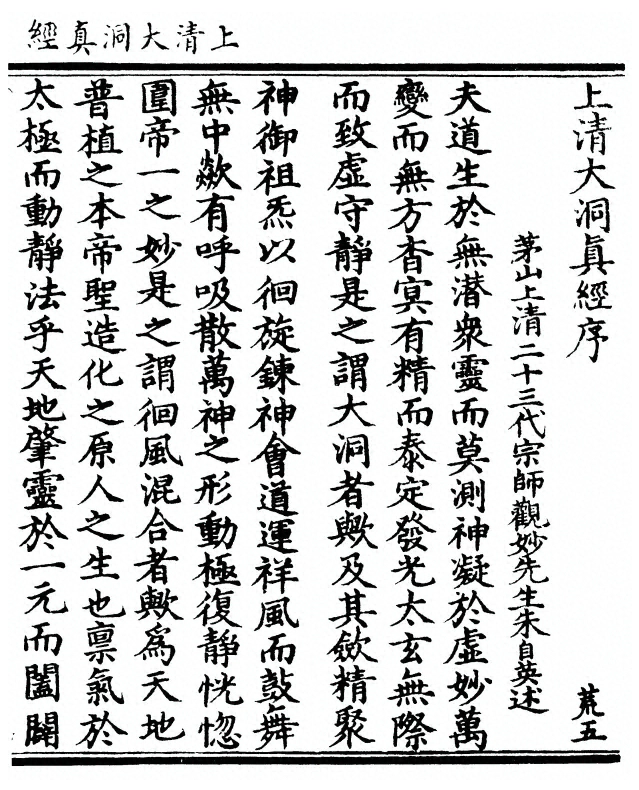 上清大洞真經
上清大洞眞經序
荒五
茅山上清二十三代宗師觀妙先生朱自英述
夫道生於無潜衆靈而莫測神凝於虛妙萬
變而無方杳冥有精而泰定發光太玄無際
而致虛守靜是之謂大洞者歟及其斂精聚
神御祖炁以徊旋鍊神會道運祥風而鼓舞
無中歘有呼吸散萬神之形動極復靜恍惚
圍帝一之妙是之謂徊風混合者歟爲天地
普植之本帝聖造化之原人之生也禀氣於
太極而動靜法乎天地肇靈於一元而闔闢